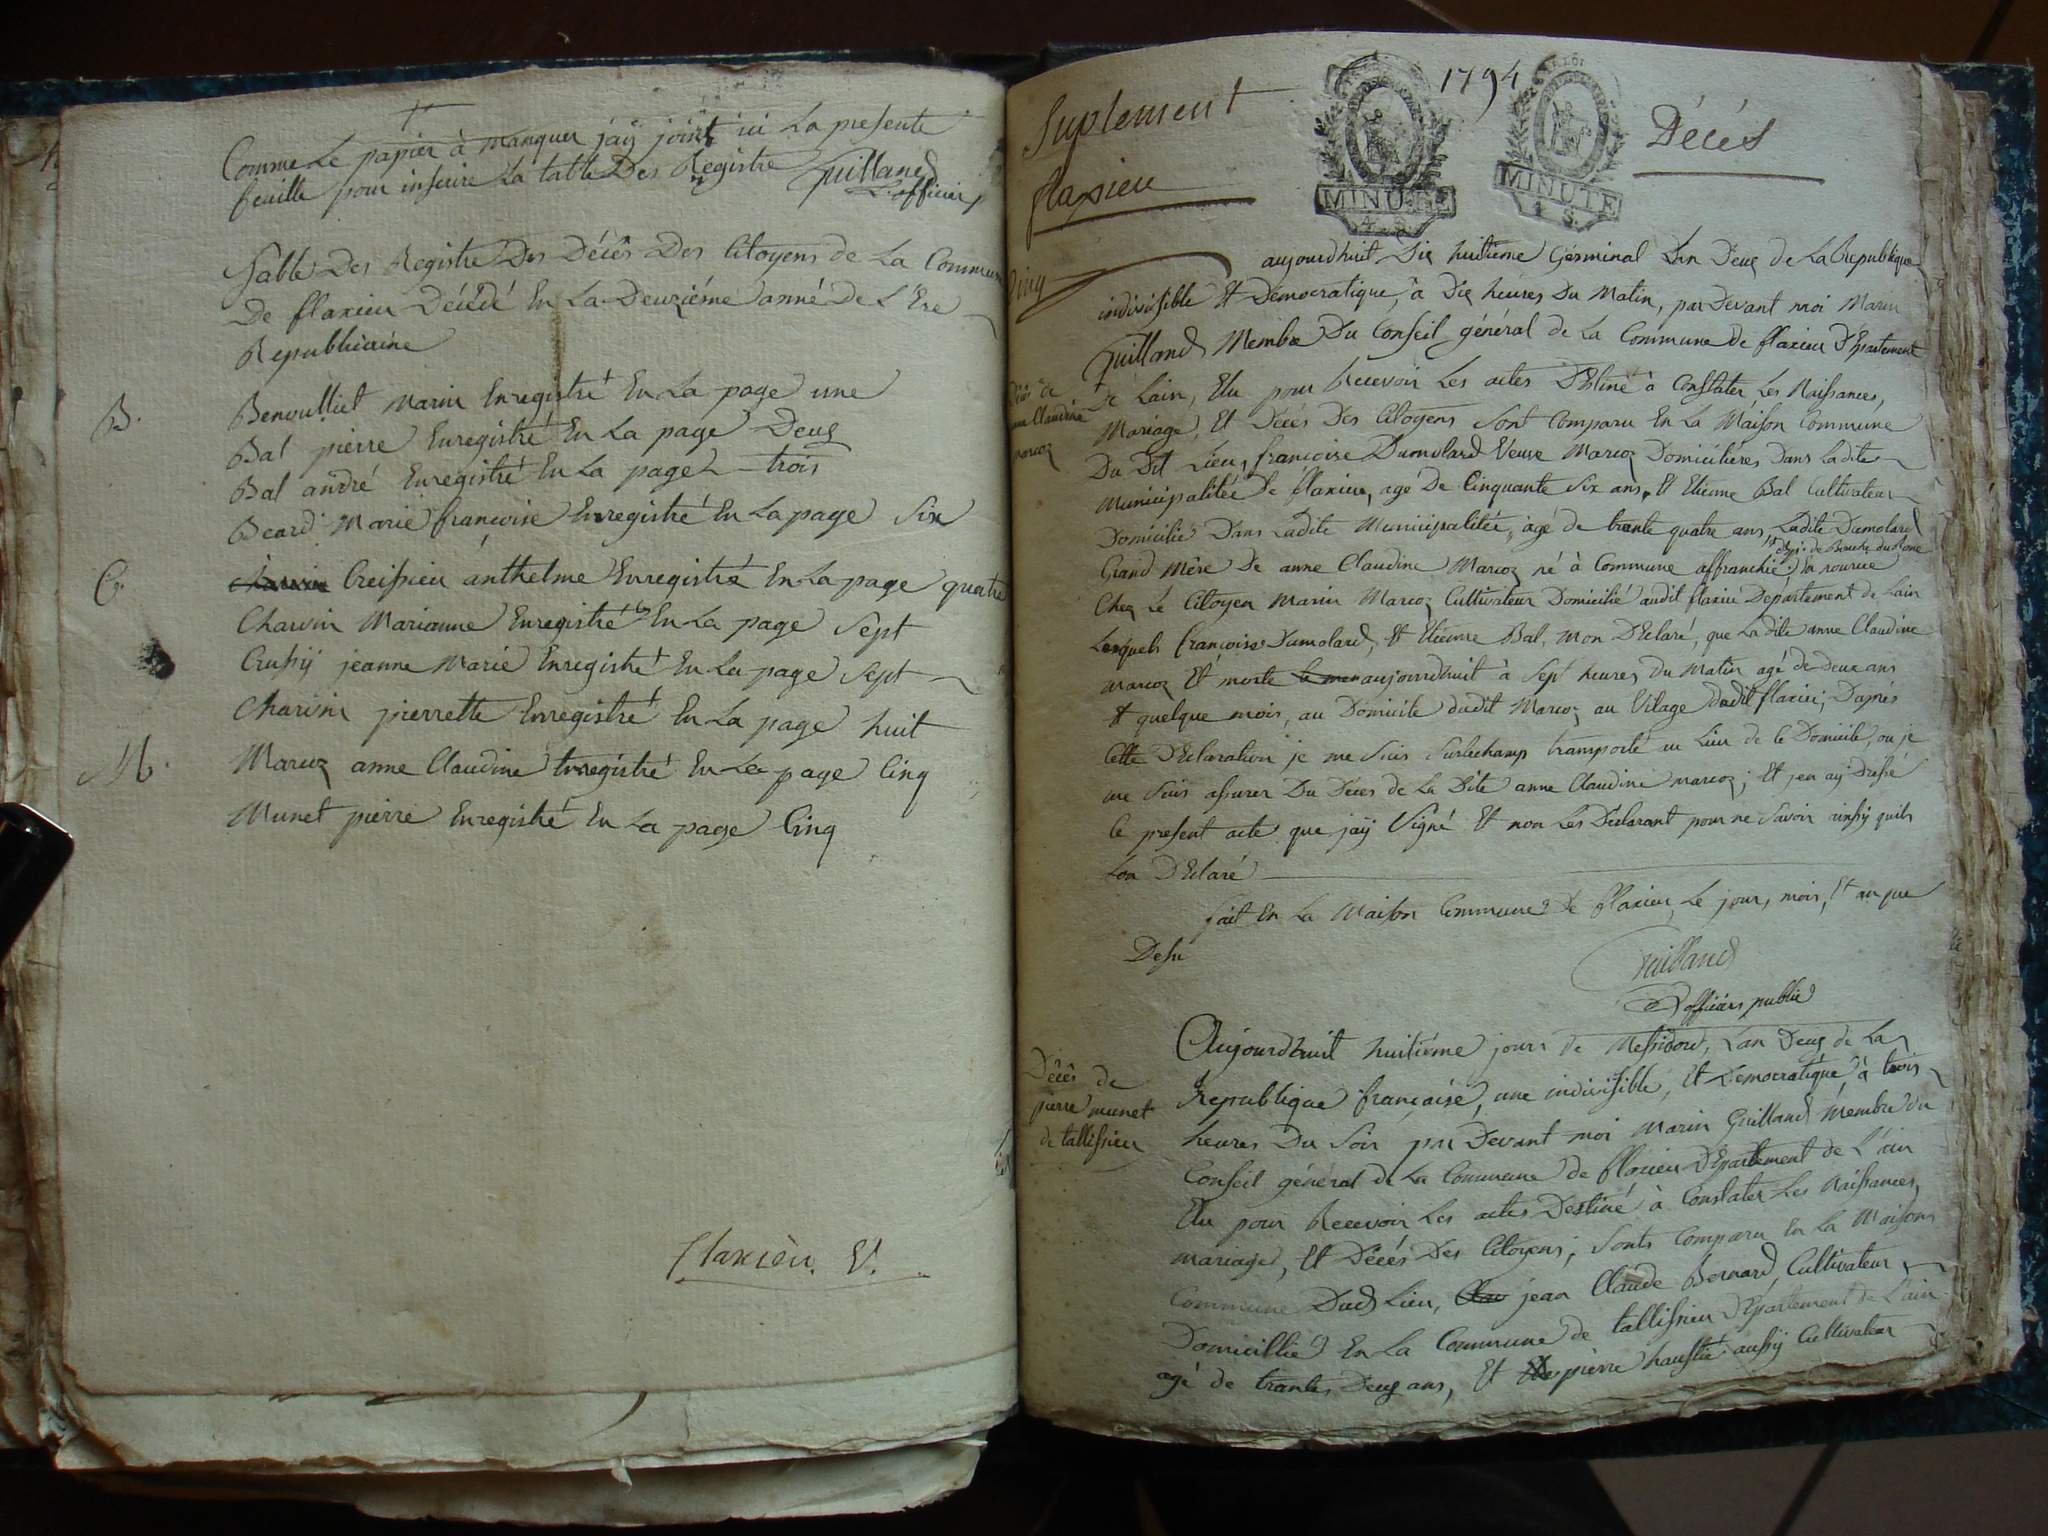 Comme Le papier à Manquer jaÿ joint ici La presente
feuille pour inserire La table Des Registre Guilland
L'officier
Table Des Registre Des Décès Des Citoyens de La Commune
De flaxieu Décédé En La Deuziéme anné De L'Ere
Republicaine
B.
Benoulliet Marin Enregistré En La page une
Bal pierre Enregistré En La page Deux
Bal andré Enregistré En La page trois
Béard Marie françoise Enregistré En La page Six
C.
Creissieu anthelme Enregistré En La page quatre
Charvin Marianne Enregistré En La page Sept
Crussÿ jeanne Marie Enregistré En La page Sept
Charvin pierrette Enregistré En La page huit
M.
Marcoz anne Claudine Enregistré En La page Cinq
Munet pierre Enregistré En La page Cinq
flaxieu. V.
1794
Suplement
Décés
flaxieu
MINUTE
4. S.
MINUTE
4 S.
Cinq
aujourdhuit Dix huitieme Gérminal L'an Deux de La Republique
indivisible Et Démocratique, à Dix heures Du Matin, par Devant moi Marin
Guilland Membre Du Conseil général de La Commune de flaxieu D'Epartement
De Lain, Elu pour Recevoir Les actes Déstiné à Constater Les Naissances,
Décès de
anne Claudine
marcoz
Mariage, Et Décés Des Citoyens Sont Comparu En La Maison Commune
Du Dit Lieu, françoise Dumolard Veuve Marcoz Domiciliéres Dans La dite
Municipalitée de flaxieu, agé De Cinquante Six ans, Et Etienne Bal Cultivateur
Domicilié Dans Ladite Municipalitée, agé de trante quatre ans, Ladite Dumolard
Grand Mère De anne Claudine Marcoz né à Commune affranchie, en nourrice
Chez Le Citoyen Marin Marcoz Cultivateur Domicilié audit flaxieu Departement de Lain
Lesquels françoise Dumolard, Et Etienne Bal, mon D'Eclaré, que La dite anne Claudine
Marcoz Et morte aujourdhuit à Sept heures Du Matin agé de deux ans
Et quelque mois, au Domicile dudit Marcoz au Vilage dudit flaxieu; D'aprés
Cette D'Eclaration je me Suis Surlechamp transporté au Lieu de Ce Domicile, ou je
me Suis assurer Du Décés de La Dite anne Claudine marcoz; Et jen aÿ Dressé
Ce present acte que jaÿ Signé Et non Les Déclarant pour ne Savoir ainsÿ quils
Lon D'Eclaré
fait En La Maison Commune De flaxieu, Le jour, mois, Et an que
Desu
Guilland
L'officiers public
Aujourdhuit huitiéme jours de Messidor, L'an Deux de La
Décês de
pierre munet
de tallissieu
Republique française, une indivisible, Et Démocratique à trois
heures Du Soir par Devant moi Marin Guilland Membre du
Conseil général de La Commune de flaxieu D'Epartement de L'ain
Elu pour Recevoir Les actes Destiné à Constater Les Naissances,
mariage, Et Décés Des Citoyens; Sonts Comparu En La Maison
Commune Dud. Lieu, jean Claude Bernard, Cultivateur
Domicillié En La Commune de tallissieu D'Epartement de L'ain
agé de trantes Deux ans, Et pierre haustte aussÿ Cultivateur